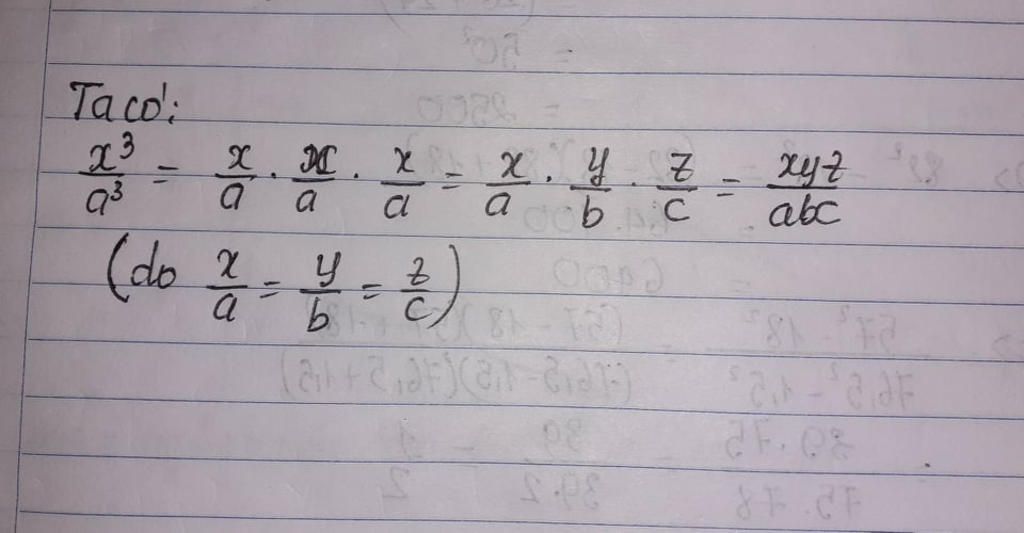 Ta có:
x³/a³ = x/a . x/a . x/a = x/a . y/b . z/c = xyz/abc
(do x/a = y/b = z/c)